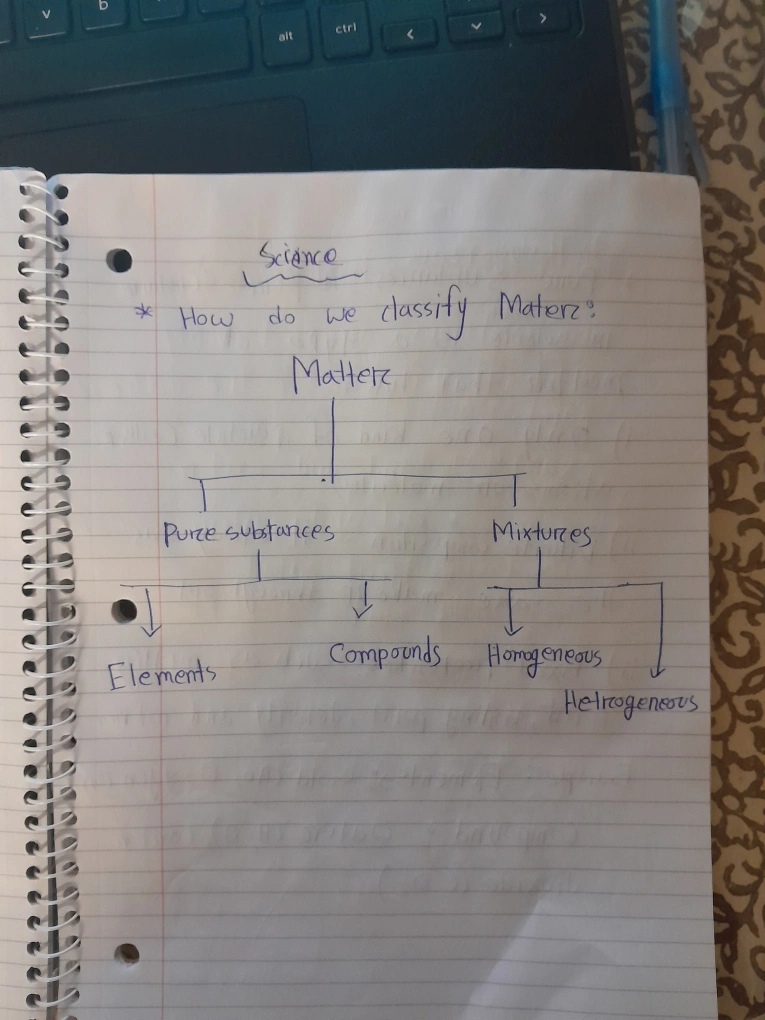 v b
alt ctrl < v >
Science
* How do we classify Matter:
Matter
Pure substances Mixtures
Elements Compounds Homogeneous
Hetrogeneous